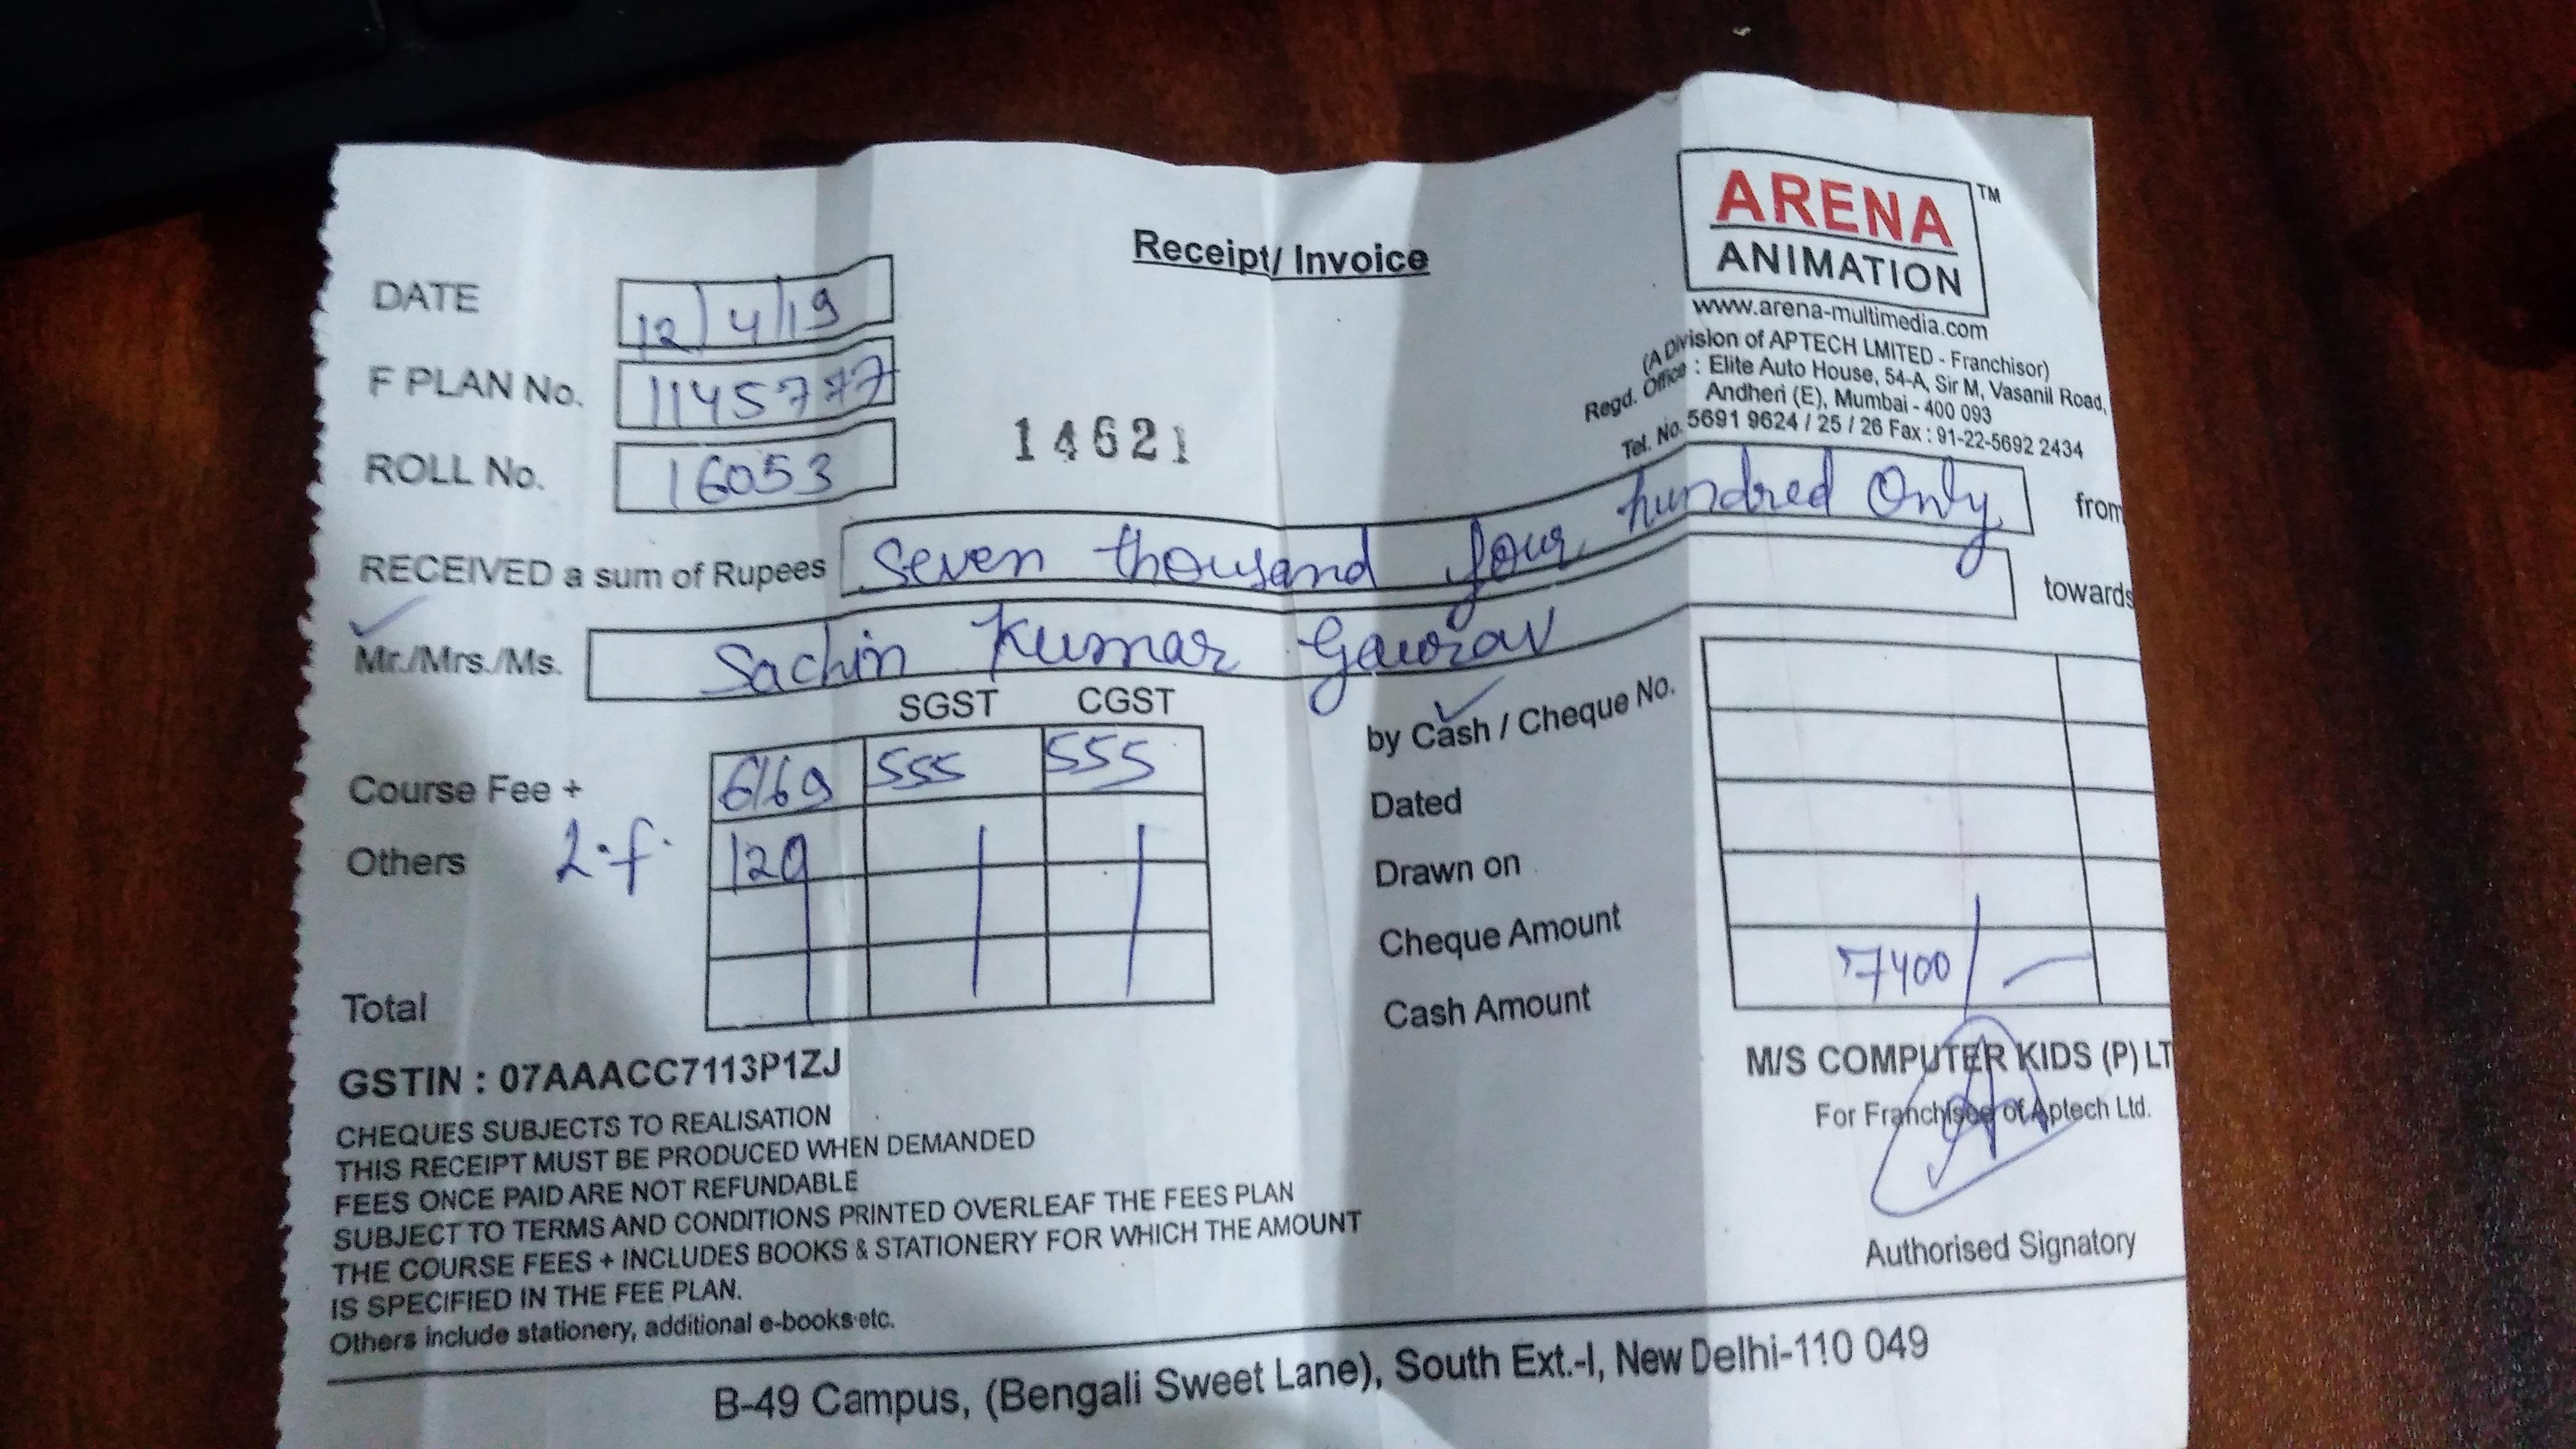 ARENA TM
ANIMATION
www.arena-multimedia.com
(A Division of APTECH LMITED - Franchisor)
Regd. Office : Elite Auto House, 54-A, Sir M, Vasanil Road,
Andheri (E), Mumbai - 400 093
Tel. No. 5691 9624 / 25 / 26 Fax : 91-22-5692 2434
Receipt/ Invoice
DATE 12/4/19
F PLAN No. 1145777
ROLL No. 16053
14621
RECEIVED a sum of Rupees Seven thousand four hundred Only from
Mr./Mrs./Ms. Sachin Kumar Gaurav towards
SGST CGST
Course Fee + 6169 555 555
Others L.f. 120
Total
by Cash / Cheque No.
Dated
Drawn on
Cheque Amount
Cash Amount 7400/-
GSTIN : 07AAACC7113P1ZJ
CHEQUES SUBJECTS TO REALISATION
THIS RECEIPT MUST BE PRODUCED WHEN DEMANDED
FEES ONCE PAID ARE NOT REFUNDABLE
SUBJECT TO TERMS AND CONDITIONS PRINTED OVERLEAF THE FEES PLAN
THE COURSE FEES + INCLUDES BOOKS & STATIONERY FOR WHICH THE AMOUNT
IS SPECIFIED IN THE FEE PLAN.
Others include stationery, additional e-books etc.
M/S COMPUTER KIDS (P) LT
For Franchisee of Aptech Ltd.
Authorised Signatory
B-49 Campus, (Bengali Sweet Lane), South Ext.-I, New Delhi-110 049